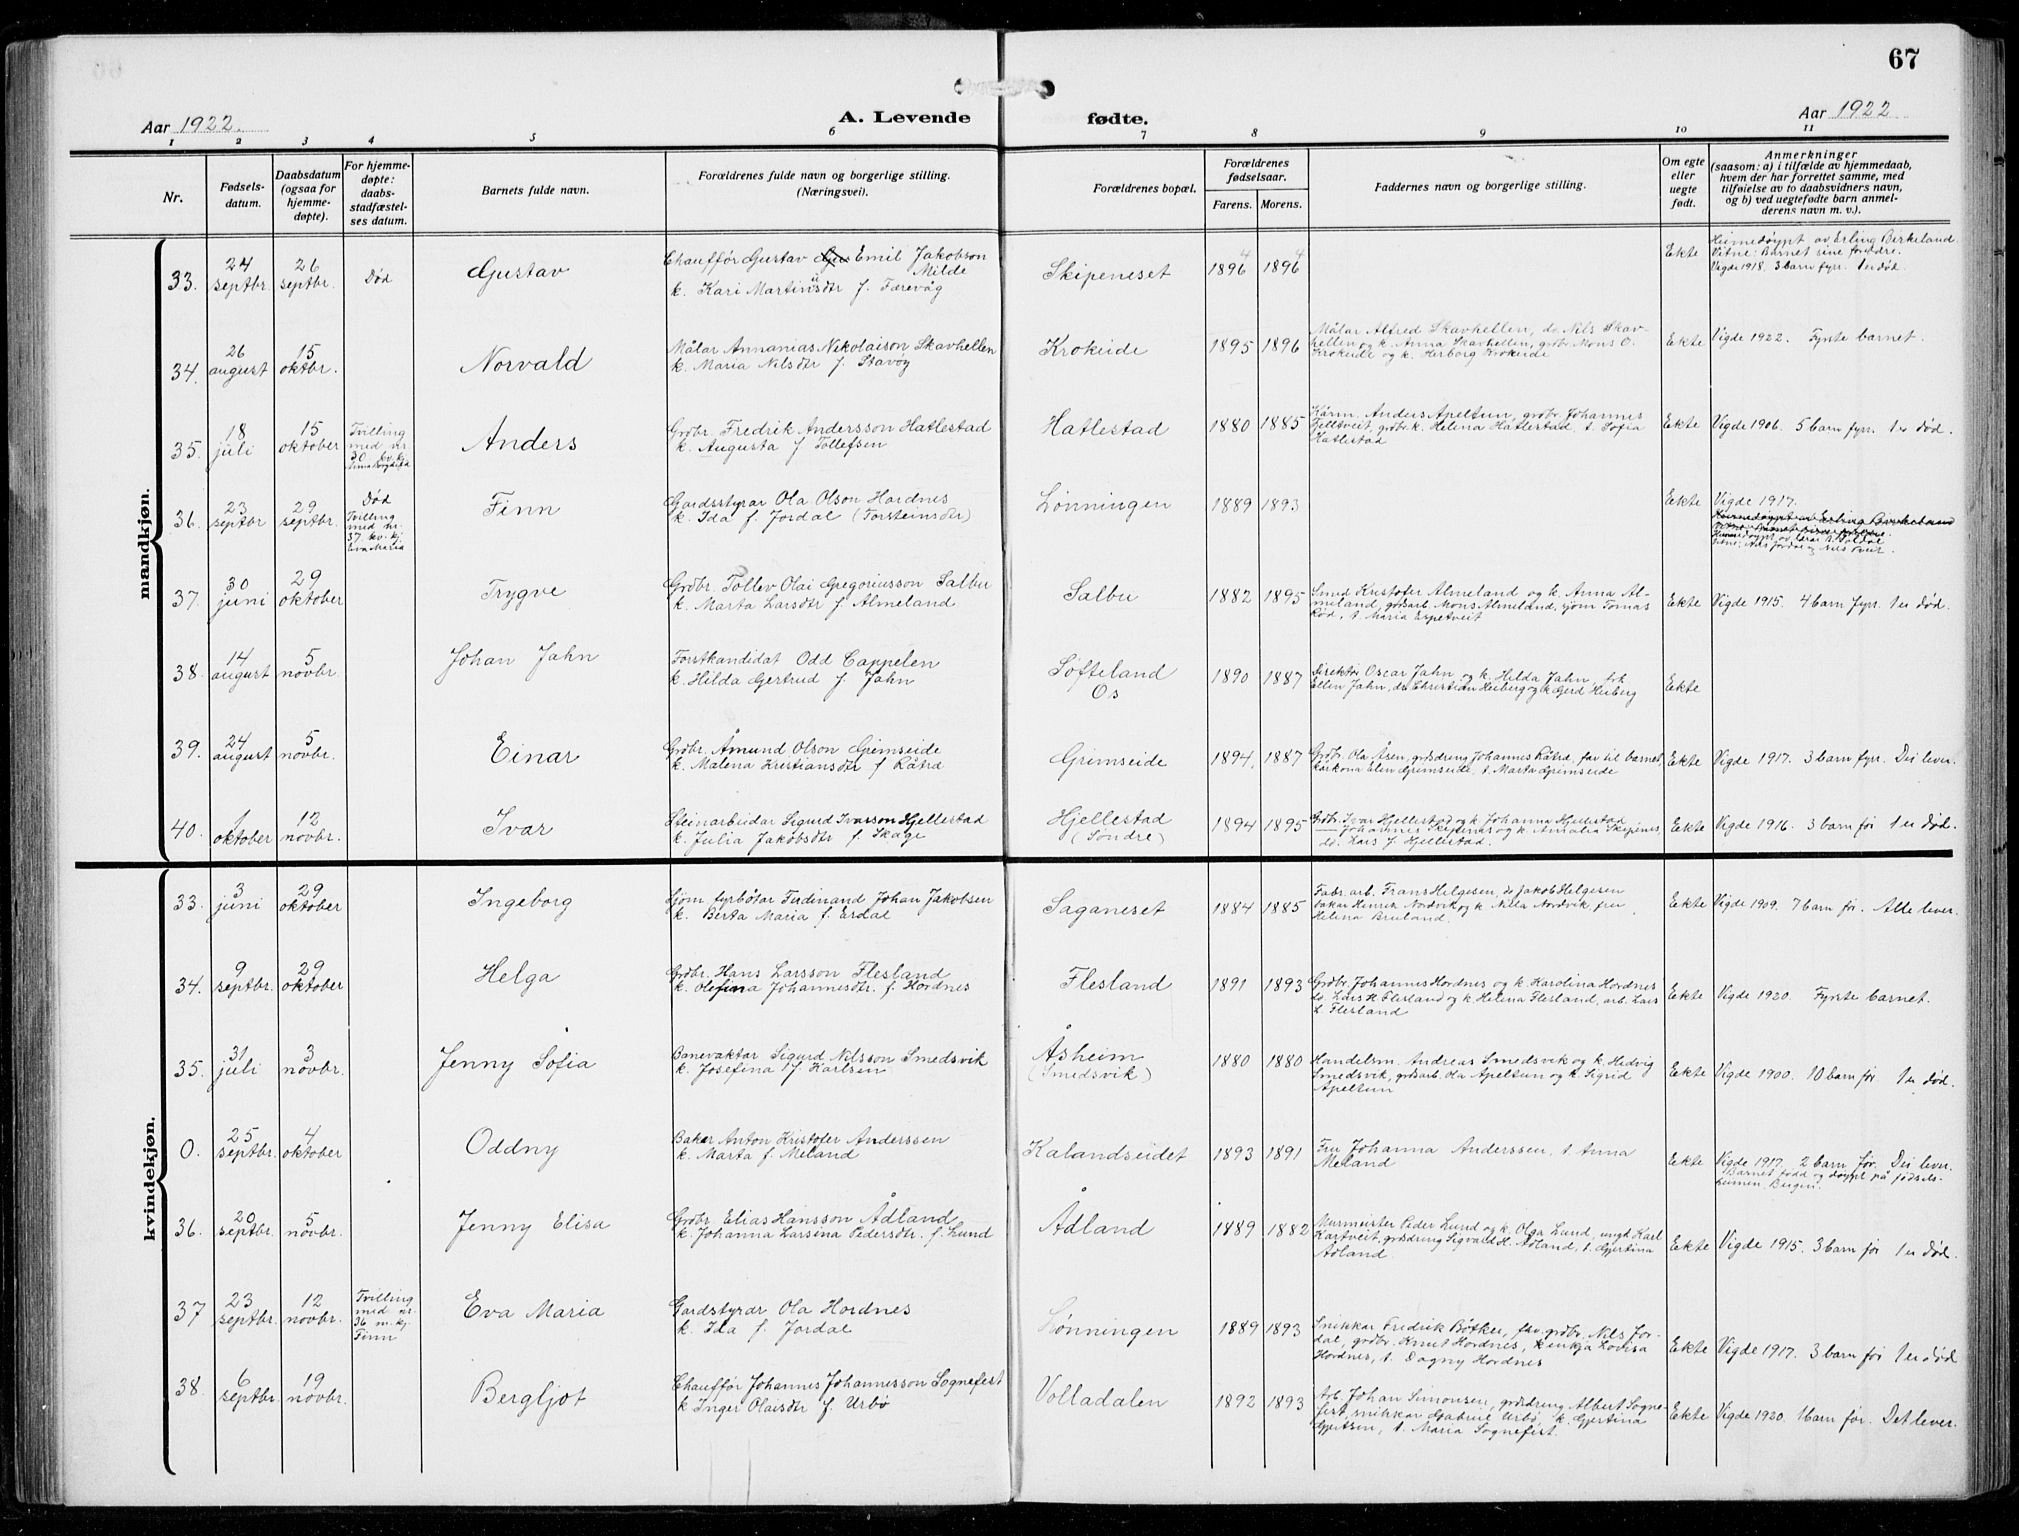 67
Aar 1922.
A. Levende fødte.
Aar 1922
1 2 3 4 5 6 7 8 9 10 11
Nr.
Fødselsdatum.
Daabsdatum (ogsaa for hjemmedøpte).
For hjemmedøpte: daabsstadfæstelses datum.
Barnets fulde navn.
Forældrenes fulde navn og borgerlige stilling. (Næringsvei).
Forældrenes bopæl.
Forældrenes fødselsaar.
Farens. Morens.
Faddernes navn og borgerlige stilling.
Om egte eller uegte født.
Anmerkninger
(saasom: a) i tilfælde av hjemmedaab, hvem der har forrettet samme, med tilføielse av to daabsvidners navn, og b) ved uegtefødte barn anmelderens navn m. v.).
mandkjøn.
33. 24 septbr. 26 septbr. Død Gustav
Chauffør Gustav Emil Jakobson Milde
k. Kari Martinsdtr f. Færevåg
Skipeneset 1896 1896 Ekte
Heimedøypt av Erling Birkeland.
Vitne: Barnet sine foreldre.
Vigde 1918. 3 barn fyrr. 1 er død.
34. 26 august 15 oktbr. Norvald
Målar Annanias Nikolaison Skavhellen
k. Maria Nilsdtr f. Stavøy
Krokeide 1895 1896
Målar Alfred Skavhellen, do Nils Skavhellen og k. Anna Skavhellen, grdbr Mons O. Krokeide og k. Herborg Krokeide
Ekte Vigde 1922. Fyrste barnet.
35. 18 juli 15 oktober Tvilling med nr. 30 kv. kj. Anders
Grdbr. Fredrik Andersson Hatlestad
k. Augusta f. Tollefsen
Hatlestad 1880 1885
Anders Apeltun, grdbr. Johannes Fjeltveit, grdbr. k. Helena Hatlestad, t. Sofia Hatlestad
Ekte Vigde 1906. 5 barn fyrr. 1 er død.
36. 23 septbr 29 septbr. Død Tvilling med nr. 37 kv. kj. Eva Maria Finn
Gardsstyrar Ola Olson Hordnes
k. Ida f. Jordal (Torsteinsdtr)
Lønningen 1889 1893 Ekte
Vigde 1917.
Heimedøypt av Erling Birkeland
37. 30 juni 29 oktober Trygve
Grdbr. Tollev Olai Gregoriusson Salbu
k. Marta Larsdtr f. Almeland
Salbu 1882 1895
Smed Kristofer Almeland og k. Anna Almeland, grdarb. Mons Almeland, sjøm Tomas Rød, t. Maria Espetveit
Ekte Vigde 1915. 4 barn fyrr. 1 er død.
38. 14 august 5 novbr. Johan Jahn
Forstkandidat Odd Cappelen
k. Hilda Gertrud f. Jahn
Søfteland Os 1890 1887
Direktør Oscar Jahn og k. Hilda Jahn, frk Ellen Jahn, do Christian Heiberg og k. Gerd Heiberg
Ekte
39. 24 august 5 novbr. Einar
Grdbr. Åmund Olson Grimseide
k. Malena Kristiansdtr f. Råtræ
Grimseide 1894. 1887
Grdbr. Ola Åsen, grdsdreng Johannes Råtræ, far til barnet, kårkona Elen Grimseide, t. Marta Grimseide
Ekte Vigde 1917. 3 barn fyrr. Dei lever.
40. 1 oktober 12 novbr. Ivar
Steinarbeidar Sigurd Ivarson Hjellestad
k. Julia Jakobsdtr f. Skage
Hjellestad (Søndre) 1894 1895
Grdb. Ivar Hjellestad og k. Johanna Hjellestad
— Johannes Skipenes og k. Amalia Skipenes, do. Lars J. Hjellestad.
Ekte Vigde 1916. 3 barn før 1 er død.
kvindekjøn.
33. 3 juni 29 oktober Ingeborg
Sjøm. fyrbøtar Ferdinand Johan Jakobsen
k. Berta Maria f. Erdal
Saganeset 1884 1885
Fabr. arb. Frans Helgesen, do Jakob Helgesen
bakar Henrik Nordvik og k Nila Nordvik, fru Helena Bruland.
Ekte Vigde 1909. 7 barn før. Alle lever.
34. 9 septbr. 29 oktober Helga
Grdbr. Hans Larsson Flesland
k. Olefina Johannesdtr. f. Hordnes
Flesland 1891 1893
Grdbr. Johannes Hordnes og k. Karolina Hordnes
do. Lars H. Flesland og k. Helena Flesland, arb. Lars L. Flesland
Ekte Vigde 1920. Fyrste barnet.
35. 31 juli 3 novbr. Jenny Sofia
Banevaktar Sigurd Nilsson Smedsvik
k. Josefina f. Karlsen
Åsheim (Smedsvik) 1880 1880
Handelsm. Andreas Smedsvik og k. Hedvig Smedsvik, grdsarb. Ola Apeltun og k. Sigrid Apeltun
Ekte Vigde 1900. 10 barn før 1 er død.
0. 25 septbr. 4 oktober Oddny
Bakar Anton Kristofer Anderssen
k. Marta f. Meland
Kalandseidet 1893 1891
Fru Johanna Anderssen, t. Anna Meland
Ekte Vigde 1917. 2 barn før. Dei lever.
Barnet fødd og døypt på fødselsheimen Bergen.
36. 20 septbr. 5 novbr. Jenny Elisa
Grdbr Elias Hansson Ådland
k. Johanna Larsina Pedersdtr. f. Lund
Ådland 1889 1882
Murmeister Peder Lund og k. Olga Lund, ungk Karl Kartveit, grdsdreng Sigvald H. Ådland, t. Gjertina Ådland
Ekte Vigde 1915. 3 barn før 1 er død.
37 23 septbr. 12 novbr. Tvilling med nr. 36 m. kj. Finn Eva Maria
Gardstyrar Ola Hordnes
k. Ida f. Jordal
Lønningen 1889 1893
Snikkar Fredrik Bøtker, grdbr. Nils Jordal, grdbr. Knut Hordnes, enkja Lovisa Hordnes, t. Dagny Hordnes
Ekte Vigde 1917. 3 barn før 1 er død
38. 6 septbr. 19 novbr. Bergljot
Chauffør Johannes Johannesson Sognefest
k Inger Olaisdtr f. Urbø
Volladalen 1892 1893
Arb. Johan Simonsen, grdsdreng Albert Sognefest, snikkar Gabriel Urbø, k. Gjertina Gjertsen, t. Maria Sognefest.
Ekte Vigde 1920. 1 barn før. Det lever.